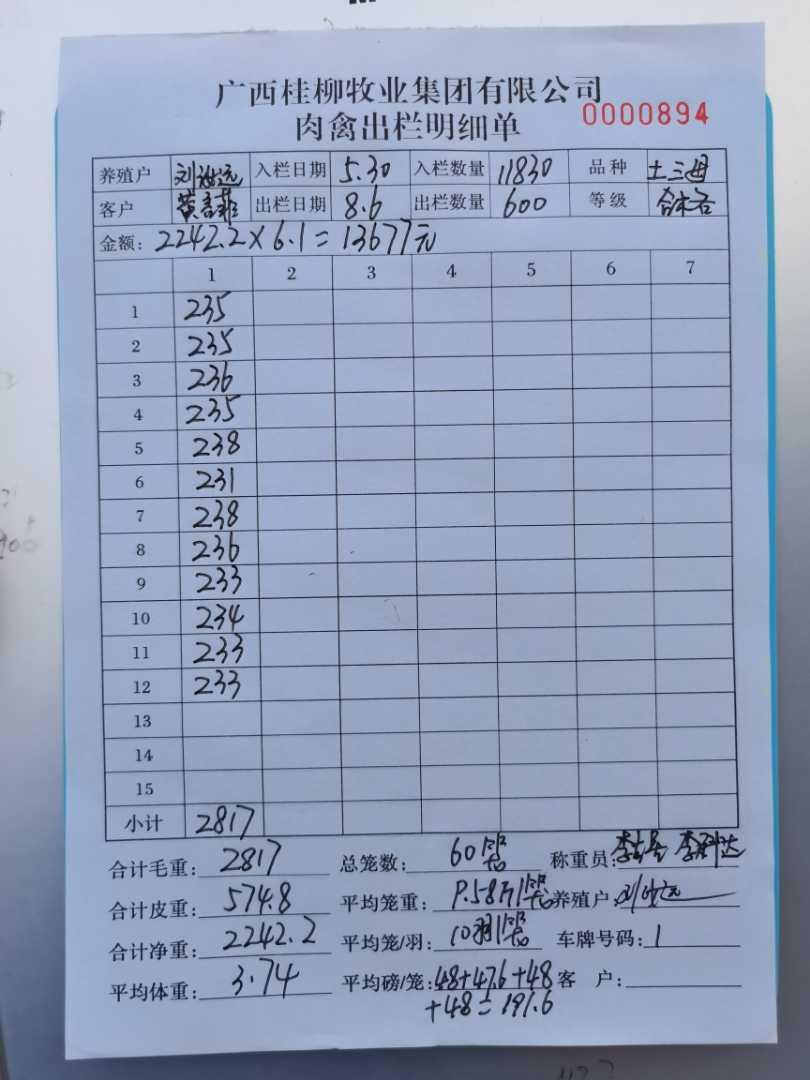 广西桂柳牧业集团有限公司
肉禽出栏明细单
0000894
养殖户 刘 远 入栏日期 5.30 入栏数量 11830 品种 土三母
客户 黄 菲 出栏日期 8.6 出栏数量 600 等级
金额: 2242.2×6.1=13677元
1 2 3 4 5 6 7
1 235
2 235
3 236
4 235
5 238
6 231
7 238
8 236
9 233
10 234
11 233
12 233
13
14
15
小计 2817
合计毛重: 2817 总笼数: 60笼 称重员: 李
合计皮重: 574.8 平均笼重: 9.58斤/笼 养殖户: 刘 远
合计净重: 2242.2 平均笼/羽: 10羽/笼 车牌号码: 1
平均体重: 3.74 平均磅/笼: 48+47.6+48 客 户:
+48=191.6